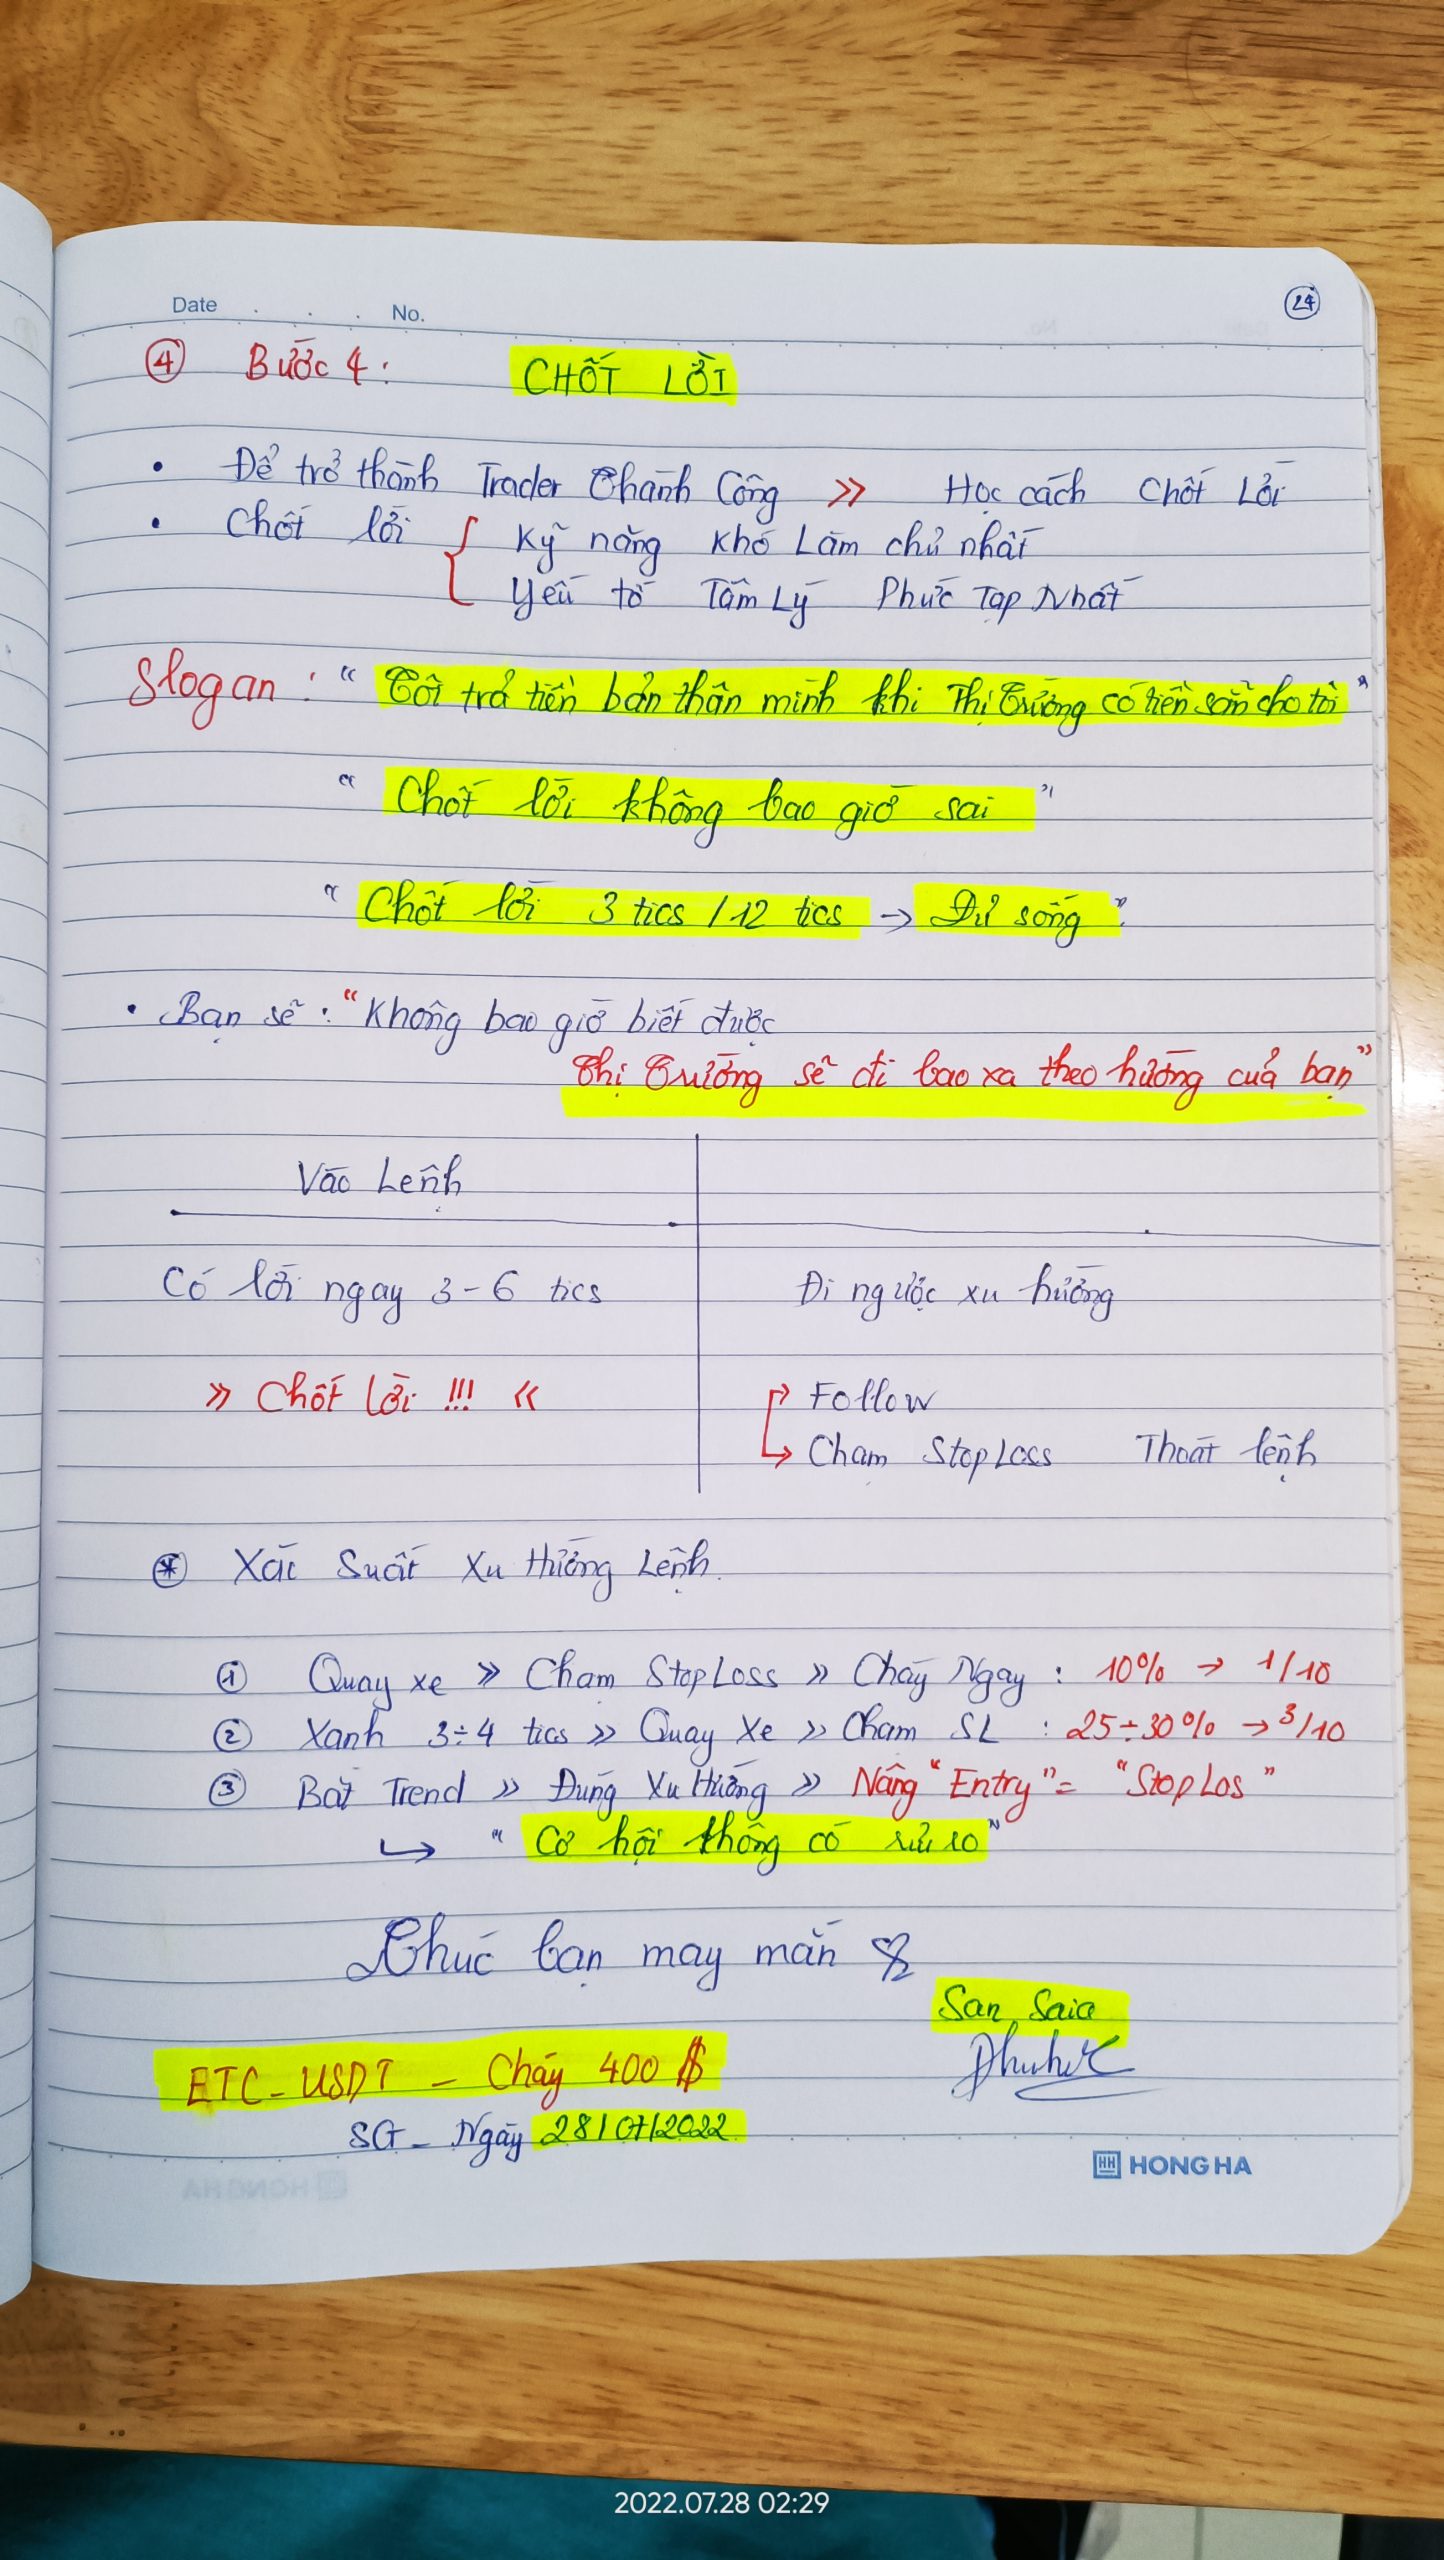 Date . . . No.
24
④ Bước 4: CHỐT LỜI
• Để trở thành Trader Thành Công >> Học cách Chốt Lời
• Chốt lời { Kỹ năng Khó Làm chủ nhất
Yếu tố Tâm Lý Phức Tạp Nhất
Slogan : “ Tôi trả tiền bản thân mình khi Thị Trường có tiền sẵn cho tôi ”
“ Chốt lời không bao giờ sai ”
“ Chốt lời 3 tics / 12 tics → Đủ sống ”.
• Bạn sẽ : “ Không bao giờ biết được
Thị Trường sẽ đi bao xa theo hướng của bạn ”
Vào Lệnh
Có lời ngay 3 - 6 tics
Đi ngược xu hướng
>> Chốt lời !!! <<
→ Follow
→ Chạm StopLoss Thoát lệnh
⊛ Xác Suất Xu Hướng Lệnh.
① Quay xe >> Chạm StopLoss >> Cháy Ngay : 10% → 1/10
② Xanh 3÷4 tics >> Quay Xe >> Chạm SL : 25÷30% → 3/10
③ Bắt Trend >> Đúng Xu Hướng >> Nâng “Entry” = “StopLos”
↳ “ Cơ hội không có rủi ro ”
Chúc bạn may mắn
San Saia
ETC - USDT - Cháy 400 $
SG - Ngày 28/07/2022
HH HONG HA
2022.07.28 02:29